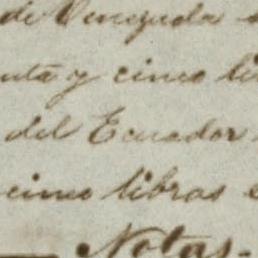 de Venezuela
nta y cinco li
del Ecuador.
cinco libras e
Notas.